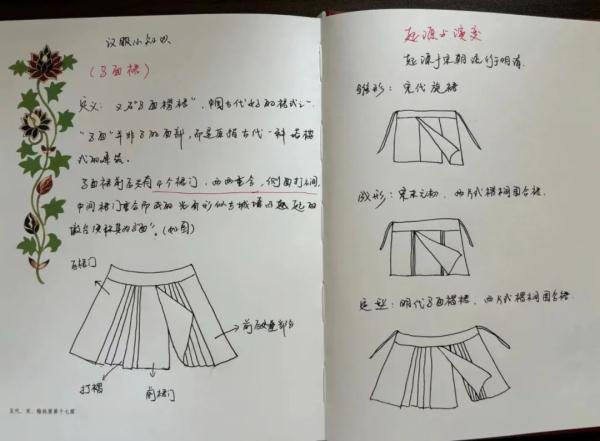 汉服小知识
(马面裙)
定义：又名"马面褶裙"，中国古代女子的裙式之一。
"马面"并非马的面部，而是直指古代一种城墙
式的建筑。
马面裙前后共有4个裙门，两两重合，侧面打裥，
中间裙门重合而成的光面形似古城墙凸起的
敌台便称其为"马面"。(如图)
后裙门
前后处重叠部分
打褶
前裙门
五代，宋，榆林窟第十七窟
起源与演变
起源于宋朝流行于明清
雏形：宋代旋裙
成形：宋末元初，两片式褶裥围合裙
定型：明代马面褶裙，两片式褶裥围合裙